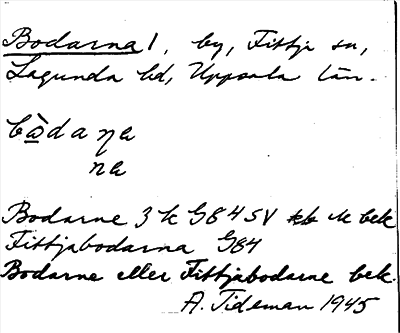 Bodarna 1, by, Fittja sn,
Lagunda hd, Uppsala län.
bò̱daꞃa
na
Bodarne 3 k G84SV bek
Fittjabodarna G84
Bodarne eller Fittjabodarne bek.
A. Tideman 1945